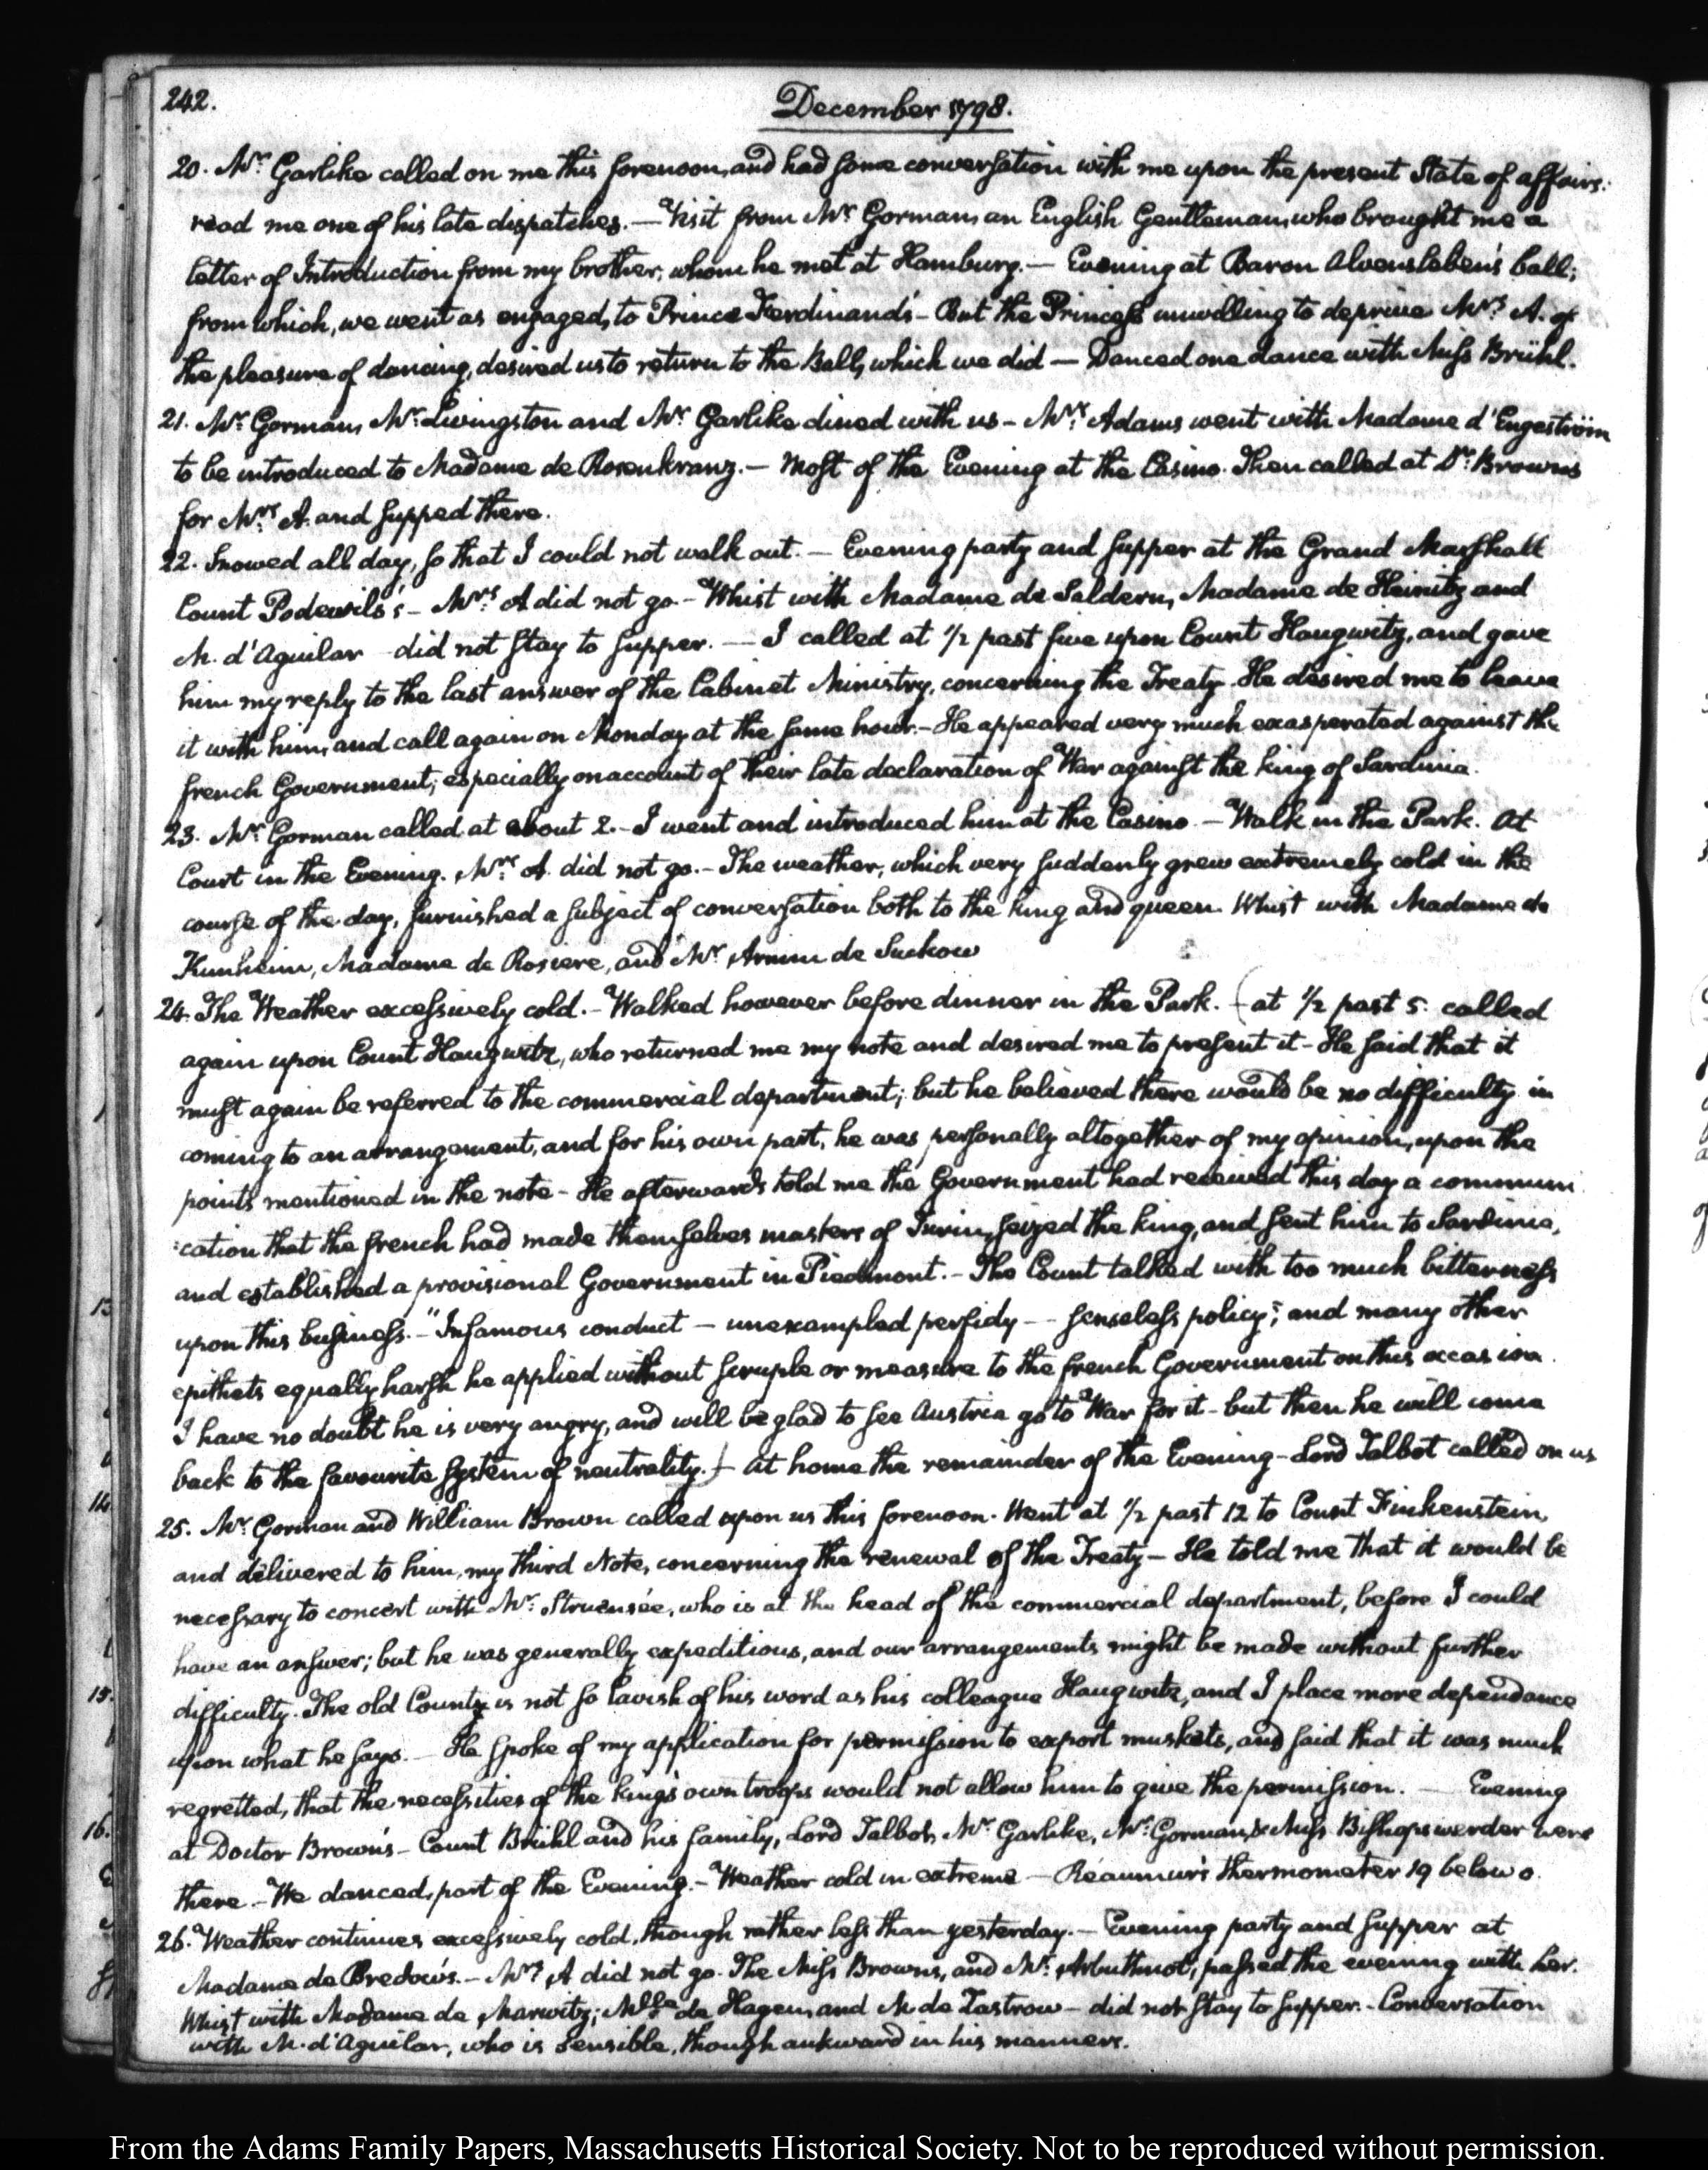 242.
December 1798.
20. Mr. Garlike called on me this forenoon, and had some conversation with me upon the present State of affairs:
read me one of his late dispatches. — Visit from Mr. Gorman, an English Gentleman, who brought me a
letter of Introduction from my brother, whom he met at Hamburg. — Evening at Baron Alvensleben's ball;
from which, we went as engaged, to Prince Ferdinand's — But the Princess unwilling to deprive Mrs. A. of
the pleasure of dancing, desired us to return to the Ball, which we did — Danced one dance with Miss Brühl.
21. Mr. Gorman, Mr. Livingston and Mr. Garlike dined with us — Mrs. Adams went with Madame d'Engeström
to be introduced to Madame de Rosenkranz. — Most of the Evening at the Casino. Then called at Dr. Browns
for Mrs. A. and supped there.
22. Snowed all day, so that I could not walk out. — Evening party and supper at the Grand Marshall
Count Podewils's — Mrs. A did not go. — Whist with Madame de Saldern, Madame de Heinitz and
M. d'Aguilar did not stay to supper. — I called at 1/2 past five upon Count Haugwitz, and gave
him my reply to the last answer of the Cabinet Ministry, concerning the Treaty. He desired me to leave
it with him, and call again on Monday at the same hour. — He appeared very much exasperated against the
french Government; especially on account of their late declaration of War against the king of Sardinia.
23. Mr. Gorman called at about 2. — I went and introduced him at the Casino — Walk in the Park. At
Court in the Evening. Mrs. A. did not go. — The weather, which very suddenly grew extremely cold in the
course of the day, furnished a subject of conversation both to the king and queen. Whist with Madame de
Kunheim, Madame de Rosiere, and Mr. Arnim de Suckow
24. The Weather excessively cold. — Walked however before dinner in the Park. — (at 1/2 past 5. called
again upon Count Haugwitz, who returned me my note and desired me to present it — He said that it
must again be referred to the commercial department; but he believed there would be no difficulty in
coming to an arrangement, and for his own part, he was personally altogether of my opinion, upon the
points mentioned in the note — He afterwards told me the Government had received this day a commun
:cation that the french had made themselves masters of Turin, seized the king, and sent him to Sardinia,
and established a provisional Government in Piedmont. — The Count talked with too much bitterness
upon this business. — "Infamous conduct — unexampled perfidy — senseless policy"; and many other
epithets equally harsh he applied without scruple or measure to the french Government on this occasion.
I have no doubt he is very angry, and will be glad to see Austria go to War for it — but then he will come
back to the favourite system of neutrality.) — At home the remainder of the Evening — Lord Talbot called on us
25. Mr. Gorman and William Brown called upon us this forenoon. Went at 1/2 past 12 to Count Finkenstein,
and delivered to him, my third Note, concerning the renewal of the Treaty — He told me that it would be
necessary to concert with Mr. Struensée, who is at the head of the commercial department, before I could
have an answer; but he was generally expeditious, and our arrangements might be made without further
difficulty. The old Count is not so lavish of his word as his colleague Haugwitz, and I place more dependance
upon what he says. — He spoke of my application for permission to export muskets, and said that it was much
regretted, that the necessities of the king's own troops would not allow him to give the permission. — Evening
at Doctor Brown's — Count Brühl and his family, Lord Talbot, Mr. Garlike, Mr. Gorman, & Miss Bishopswerder were
there — We danced, part of the Evening. — Weather cold in extreme — Réaumur's thermometer 19 below 0.
26. Weather continues excessively cold, though rather less than yesterday. — Evening party and supper at
Madame de Bredow's. — Mrs. A did not go. The Miss Browns, and Mr. Arbuthnot, passed the evening with her.
Whist with Madame de Marwitz; Mlle. de Hagen, and M. de Zastrow — did not stay to supper. — Conversation
with M. d'Aguilar, who is sensible, though aukward in his manners.
From the Adams Family Papers, Massachusetts Historical Society. Not to be reproduced without permission.